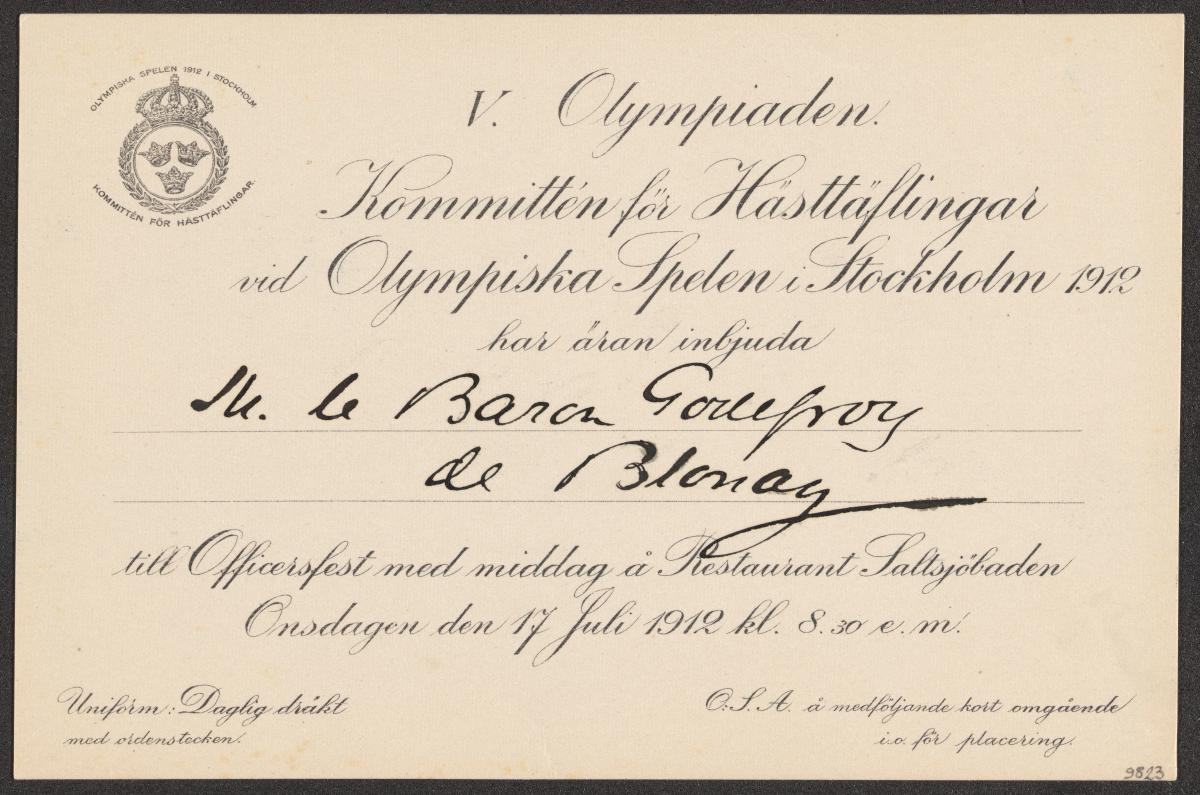 OLYMPISKA SPELEN 1912 I STOCKHOLM
KOMMITTÉN FÖR HÄSTTÄFLINGAR.
V. Olympiaden.
Kommittén för Hästtäflingar
vid Olympiska Spelen i Stockholm 1912
har äran inbjuda
M. le Baron Godefroy
de Blonay
till Officersfest med middag å Restaurant Saltsjöbaden
Onsdagen den 17 Juli 1912 kl. 8.30 e.m.
Uniform: Daglig dräkt
med ordenstecken.
O.S.A. å medföljande kort omgående
i.o. för placering.
9823